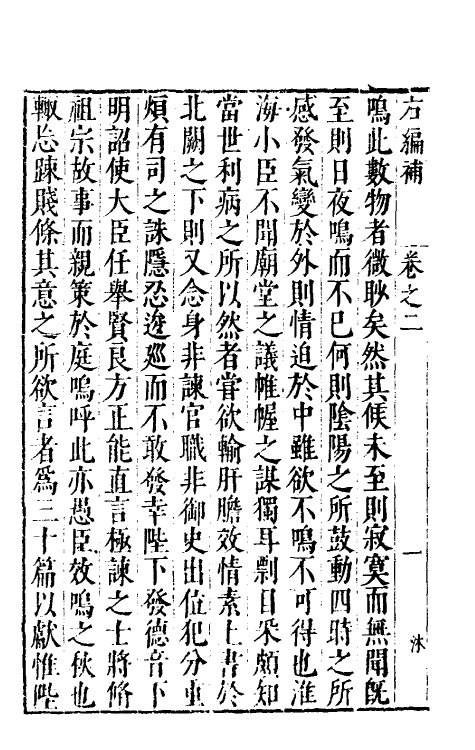 右編補　卷之二　一　沐
鳴此數物者微眇矣然其候未至則寂寞而無聞旣
至則日夜鳴而不已何則陰陽之所鼓動四時之所
感發氣變於外則情迫於中雖欲不鳴不可得也淮
海小臣不聞廟堂之議帷幄之謀獨耳剽目采頗知
當世利病之所以然者嘗欲輸肝膽效情素上書於
北闕之下則又念身非諫官職非御史出位犯分重
煩有司之誅隱忍逡廵而不敢發幸陛下發德音下
明詔使大臣任舉賢良方正能直言極諫之士將脩
祖宗故事而親策於庭嗚呼此亦愚臣效鳴之秋也
輙忘踈賤條其意之所欲言者爲三十篇以獻惟陛